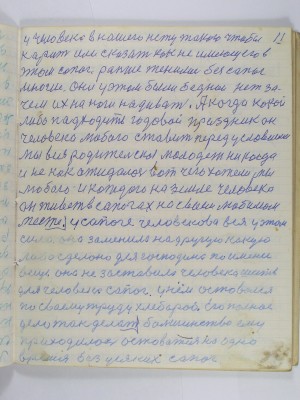 11
у человека в нашего нету такого чтобы
карит или сказат как не имеющего в
этом сапог, раньше жили без сапог
многие, они у этом были бедная нет за-
чем их на ноги надиват. А когда какой
либо подходит годовой праздник он
человека любого ставит перед условием
мы вся родителскы молодеж никогда
и не как ожидалос вот чего хотели, мы
любого и каждого на земле человека
он живет в сапогах на своим любимом
месте. у сапоге человекова вся у этом
сила она заменила на другую какую
либо сделано для господина по имени
вещь она не заставила человека
для человека сапог. у нем оставался
по своему труду хлебаров. его полное
дело так делат большинство ему
приходилос оставатся на одно
время без всяких сапог